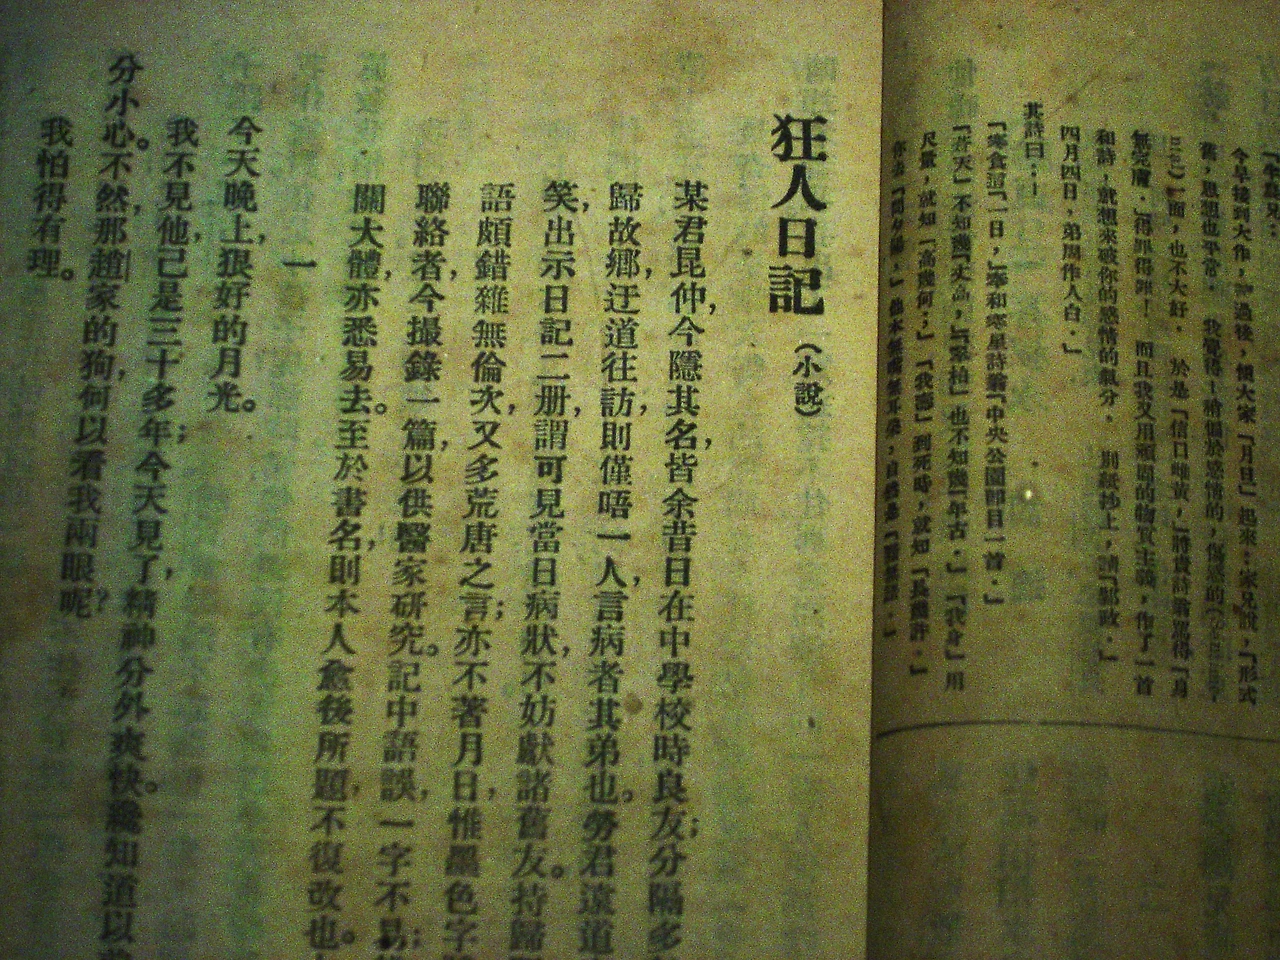 今早接到大作，讀過後，大家「月旦」起來：家兄說，「形式
舊，思想也平常．　我覺得！稍偏於感情的，傷感的
一面，也不大好．　於是「信口雌黃，」將貴詩翁罵得「月
無完膚．」得罪得罪！　而且我又用頑固的物質主義，作了一首
和詩，就想來破你的感情的氣分．　別紙抄上，請「郢政．」
四月四日，弟周作人白．」
其詩曰：—
「寒食這一日，」奉和寒星詩翁「中央公園即目一首．」
「蒼天」不知幾「丈高，」「翠柏」也不知幾「年古．」「我身」用
尺量，就知「高幾何；」「我壽」到死時，就知「長幾許．」
你去「問夕陽，」他本無嘴無耳朵，自然是「黯無語．」
狂人日記（小說）
某君昆仲，今隱其名，皆余昔日在中學校時良友；分隔多
歸故鄉，迂道往訪，則僅晤一人，言病者其弟也。勞君遠道
笑，出示日記二册，謂可見當日病狀，不妨獻諸舊友。持歸
語頗錯雜無倫次，又多荒唐之言；亦不著月日，惟墨色字
聯絡者，今撮錄一篇，以供醫家研究。記中語誤，一字不易；
關大體，亦悉易去。至於書名，則本人愈後所題，不復改也。
一
今天晚上，狠好的月光。
我不見他，已是三十多年；今天見了，精神分外爽快。纔知道以
分小心。不然，那趙家的狗，何以看我兩眼呢？
我怕得有理。